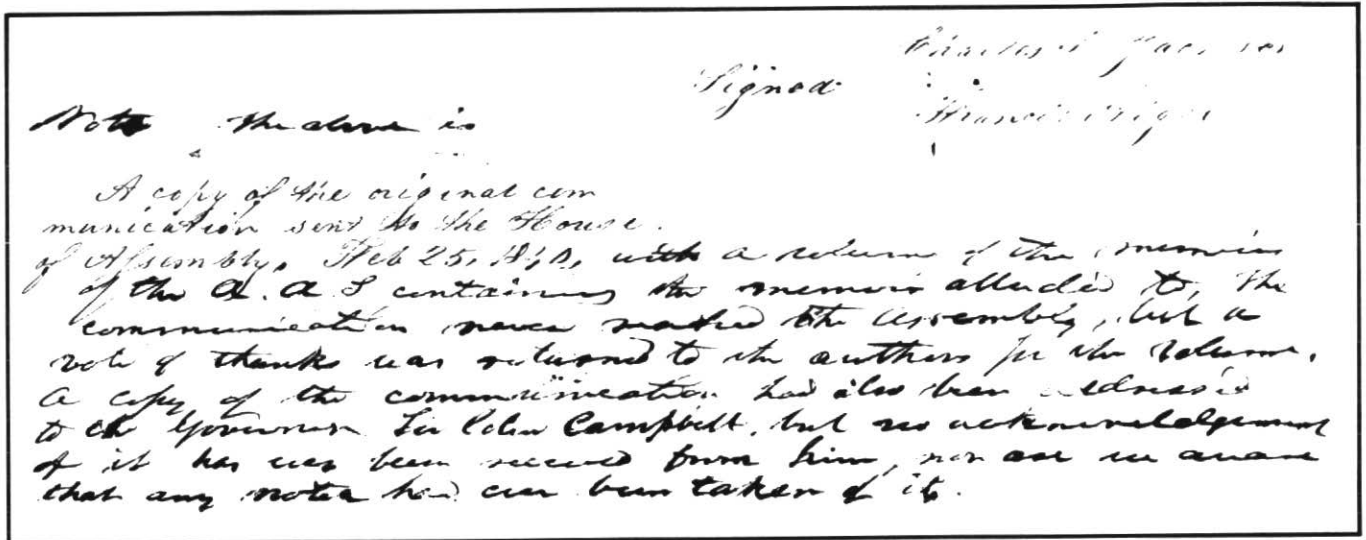 Signed
Note The above is
A copy of the original com
munication sent to the House
of Assembly, Feb 25, with a volume of the memoirs
of the A. A S containing the memoir alluded to, the
communication never reached the Assembly, but a
vote of thanks was returned to the authors for the volume.
A copy of the communication had also been
to the Governor Sir Colin Campbell, but no acknowledgement
of it has ever been received from him, nor are we aware
that any notice had ever been taken of it.